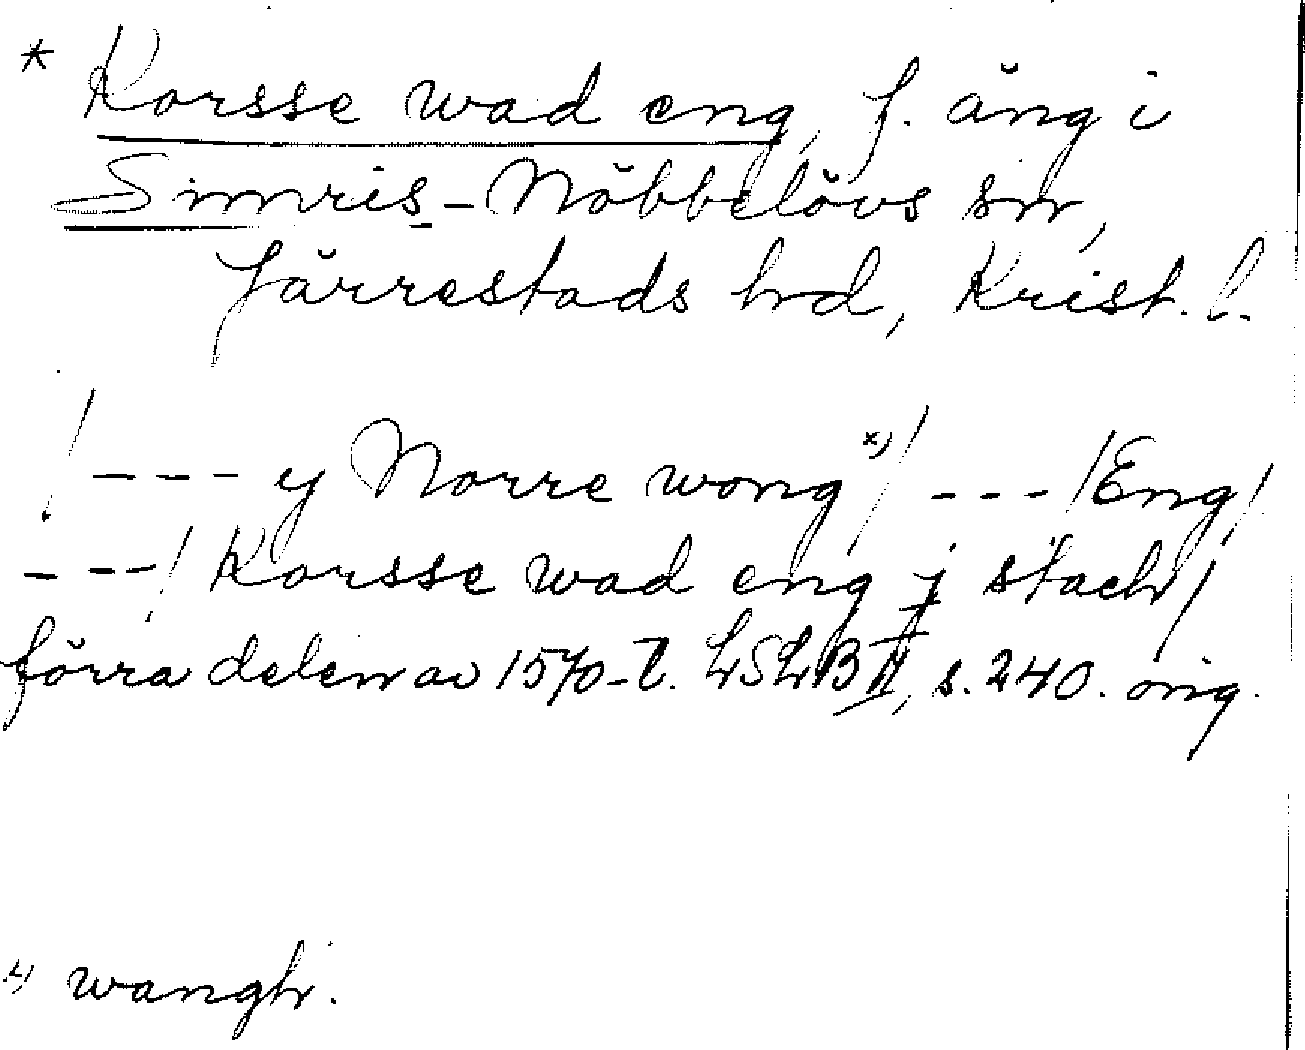 * Korsse wad eng, f. äng i
Simris-Nöbbelövs sn,
Järrestads hd, Krist. l.
/--- y Norre wong x)/ --- /Eng/
---/ Korsse wad eng j stæch/
förra delen av 1570-t. LSLB II, s. 240. orig.
x) wangh.